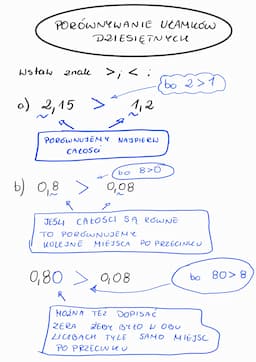 PORÓWNYWANIE UŁAMKÓW
DZIESIĘTNYCH
Wstaw znak >, < :
bo 2>1
a) 2,15 > 1,2
PORÓWNUJEMY NAJPIERW
CAŁOŚCI
bo 8>0
b) 0,8 > 0,08
JEŚLI CAŁOŚCI SĄ RÓWNE
TO PORÓWNUJEMY
KOLEJNE MIEJSCA PO PRZECINKU
0,80 > 0,08
bo 80>8
MOŻNA TEŻ DOPISAĆ
ZERA ŻEBY BYŁO W OBU
LICZBACH TYLE SAMO MIEJSC
PO PRZECINKU